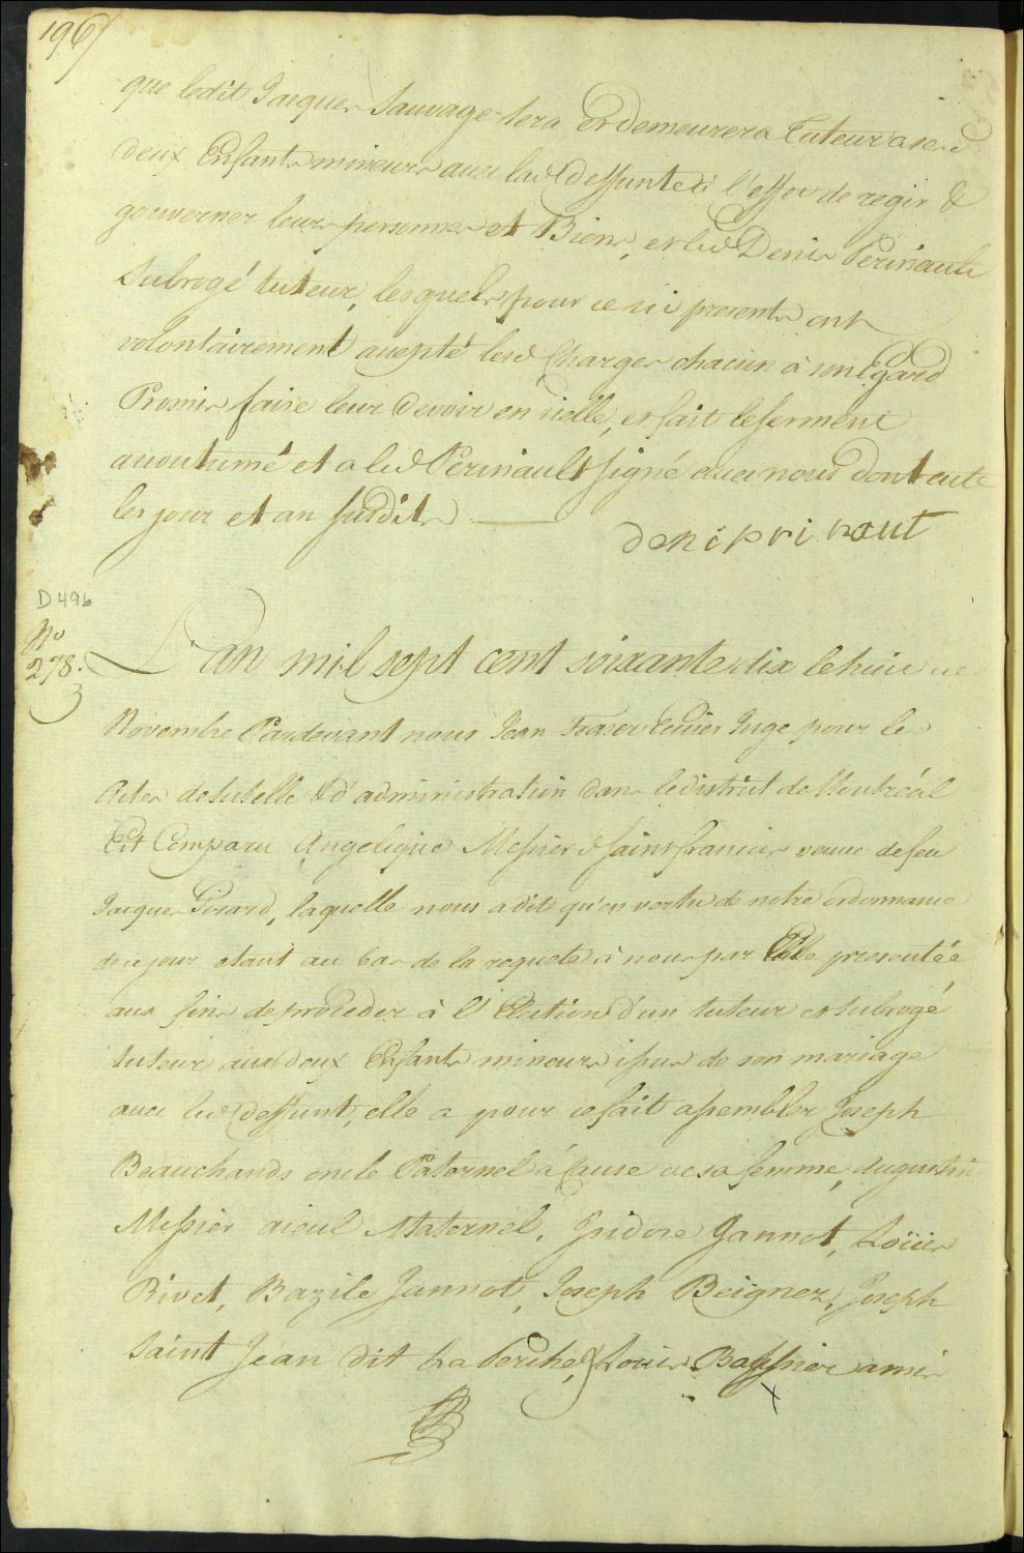 196/
que ledit Jacques Sauvage sera et demeurera Tuteur a sesd
deux Enfants mineurs avec lad deffunte à l'effet de regir &
gouverner leurs personnes et Biens, et led Denis Perinault
Subrogé tuteur, lesquels pour ce ici presents ont
volontairement accepté lesd Charges chacun à son Egard
Promis faire leur devoir en icelle, et fait le serment
accoutumé et a led Perinault signé avec nous dont acte
les jour et an susdits
denipri naut
D 496
No
278.
3
L'an mil sept cent soixante dix le huit de
Novembre Pardevant nous Jean Fraser Ecuier Juge pour les
Actes de tutelle & d'administration dans le district de Montréal
Est Comparu Angelique Messier St francois veuve de feu
Jacques Girard, laquelle nous a dit qu'en vertu de notre ordonnance
de ce jour etant au bas de la requete à nous par Elle presentée
aux fins de proceder à l'Election d'un tuteur et subrogé
tuteur aux deux Enfants mineurs issus de son mariage
avec led deffunt, elle a pour ce fait assembler Joseph
Beauchamp oncle Paternel à Cause de sa femme, Augustin
Messier aieul Maternel, Isidore Jannot, Loüis
Rivet, Bazile Jannot, Joseph Beignez, Joseph
Saint Jean dit La Perche, & Louis Bassier amis